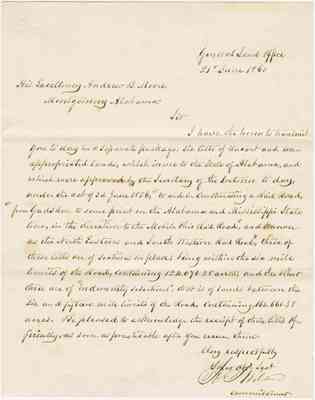 General Land Office
21st June 1860
His Excellency Andrew B. Moore
Montgomery Alabama
Sir
I have the honor to transmit
you to day in a separate package, six lists of vacant and un-
appropriated lands, which inure to the State of Alabama, and
which were approved by the Secretary of the Interior to day,
under the act of 3d June 1856, to aid in constructing a Rail Road,
"from Gadsden to some point on the Alabama and Mississippi State
line, in the direction to the Mobile Ohio Rail Road," and known
as the North Eastern and South Western Rail Road. three of
these lists are of sections in place being within the six mile
limits of the Road, containing acres, and the other
three are of "indemnity selections," that is of lands between the
six and fifteen mile limits of the Road, containing
acres. Be pleased to acknowledge the receipt of these lists of-
ficially as soon as practicable after you receive them
Very respectfully
Your Obt Servt
Commissioner